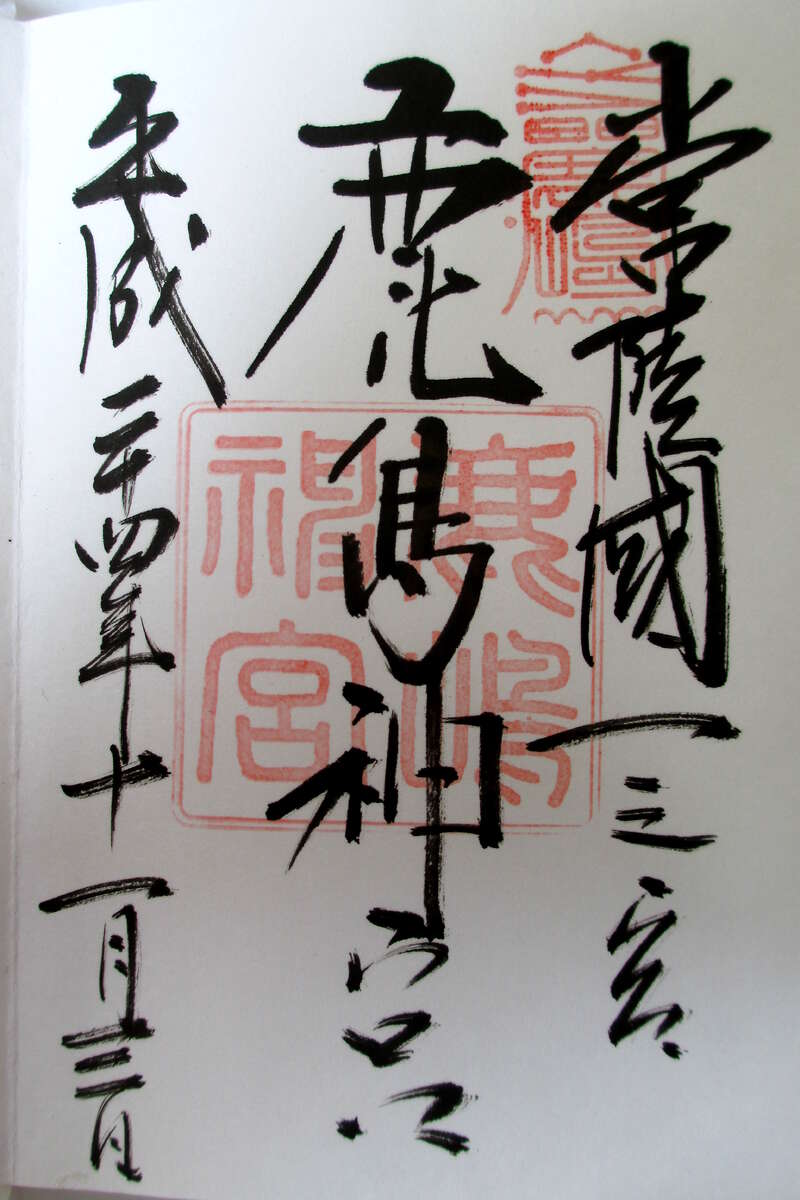 常陸國一之宮
鹿島神宮
平成二十四年十一月三日
鹿嶋
神宮